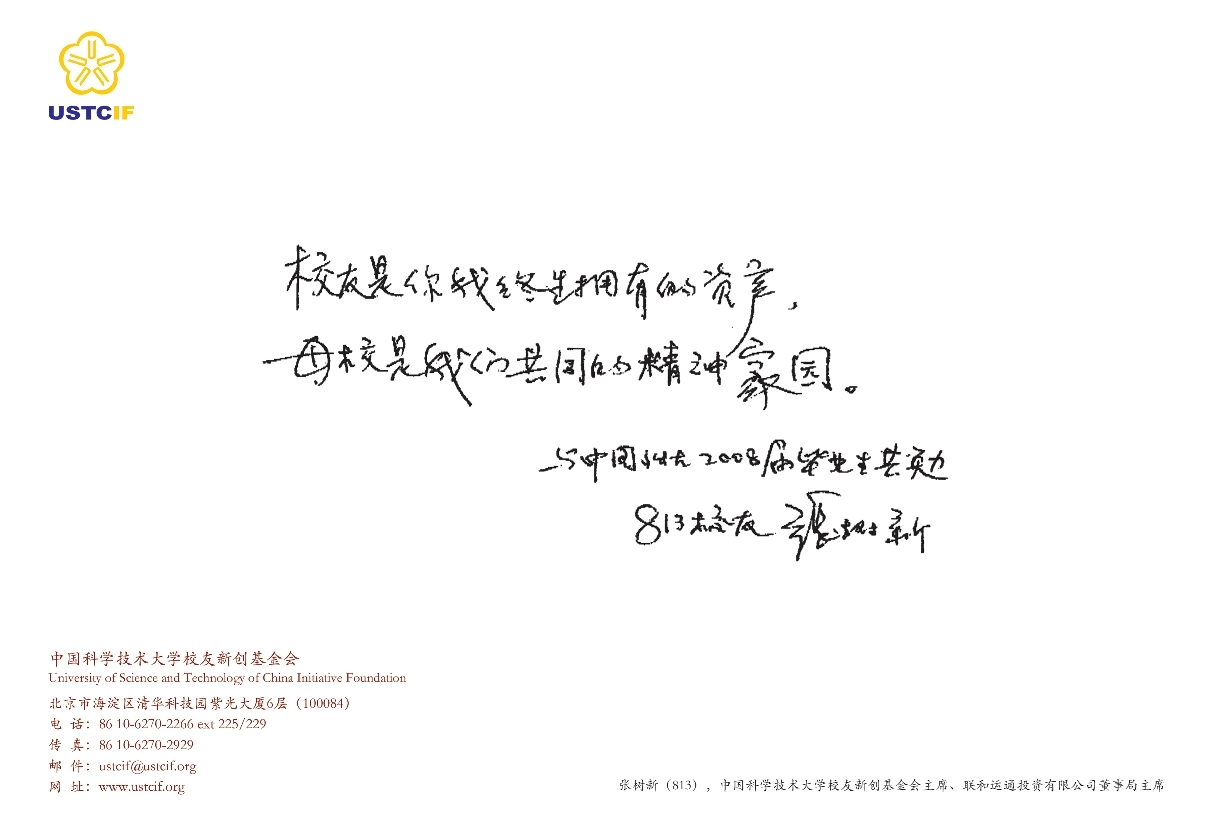 USTCIF
校友是你我终生拥有的资产，
母校是我们共同的精神家园。
与中国科大2008届毕业生共勉
813校友 張树新
中国科学技术大学校友新创基金会
University of Science and Technology of China Initiative Foundation
北京市海淀区清华科技园紫光大厦6层（100084）
电 话：86 10-6270-2266 ext 225/229
传 真：86 10-6270-2929
邮 件：ustcif@ustcif.org
网 址：www.ustcif.org
张树新（813），中国科学技术大学校友新创基金会主席、联和运通投资有限公司董事局主席